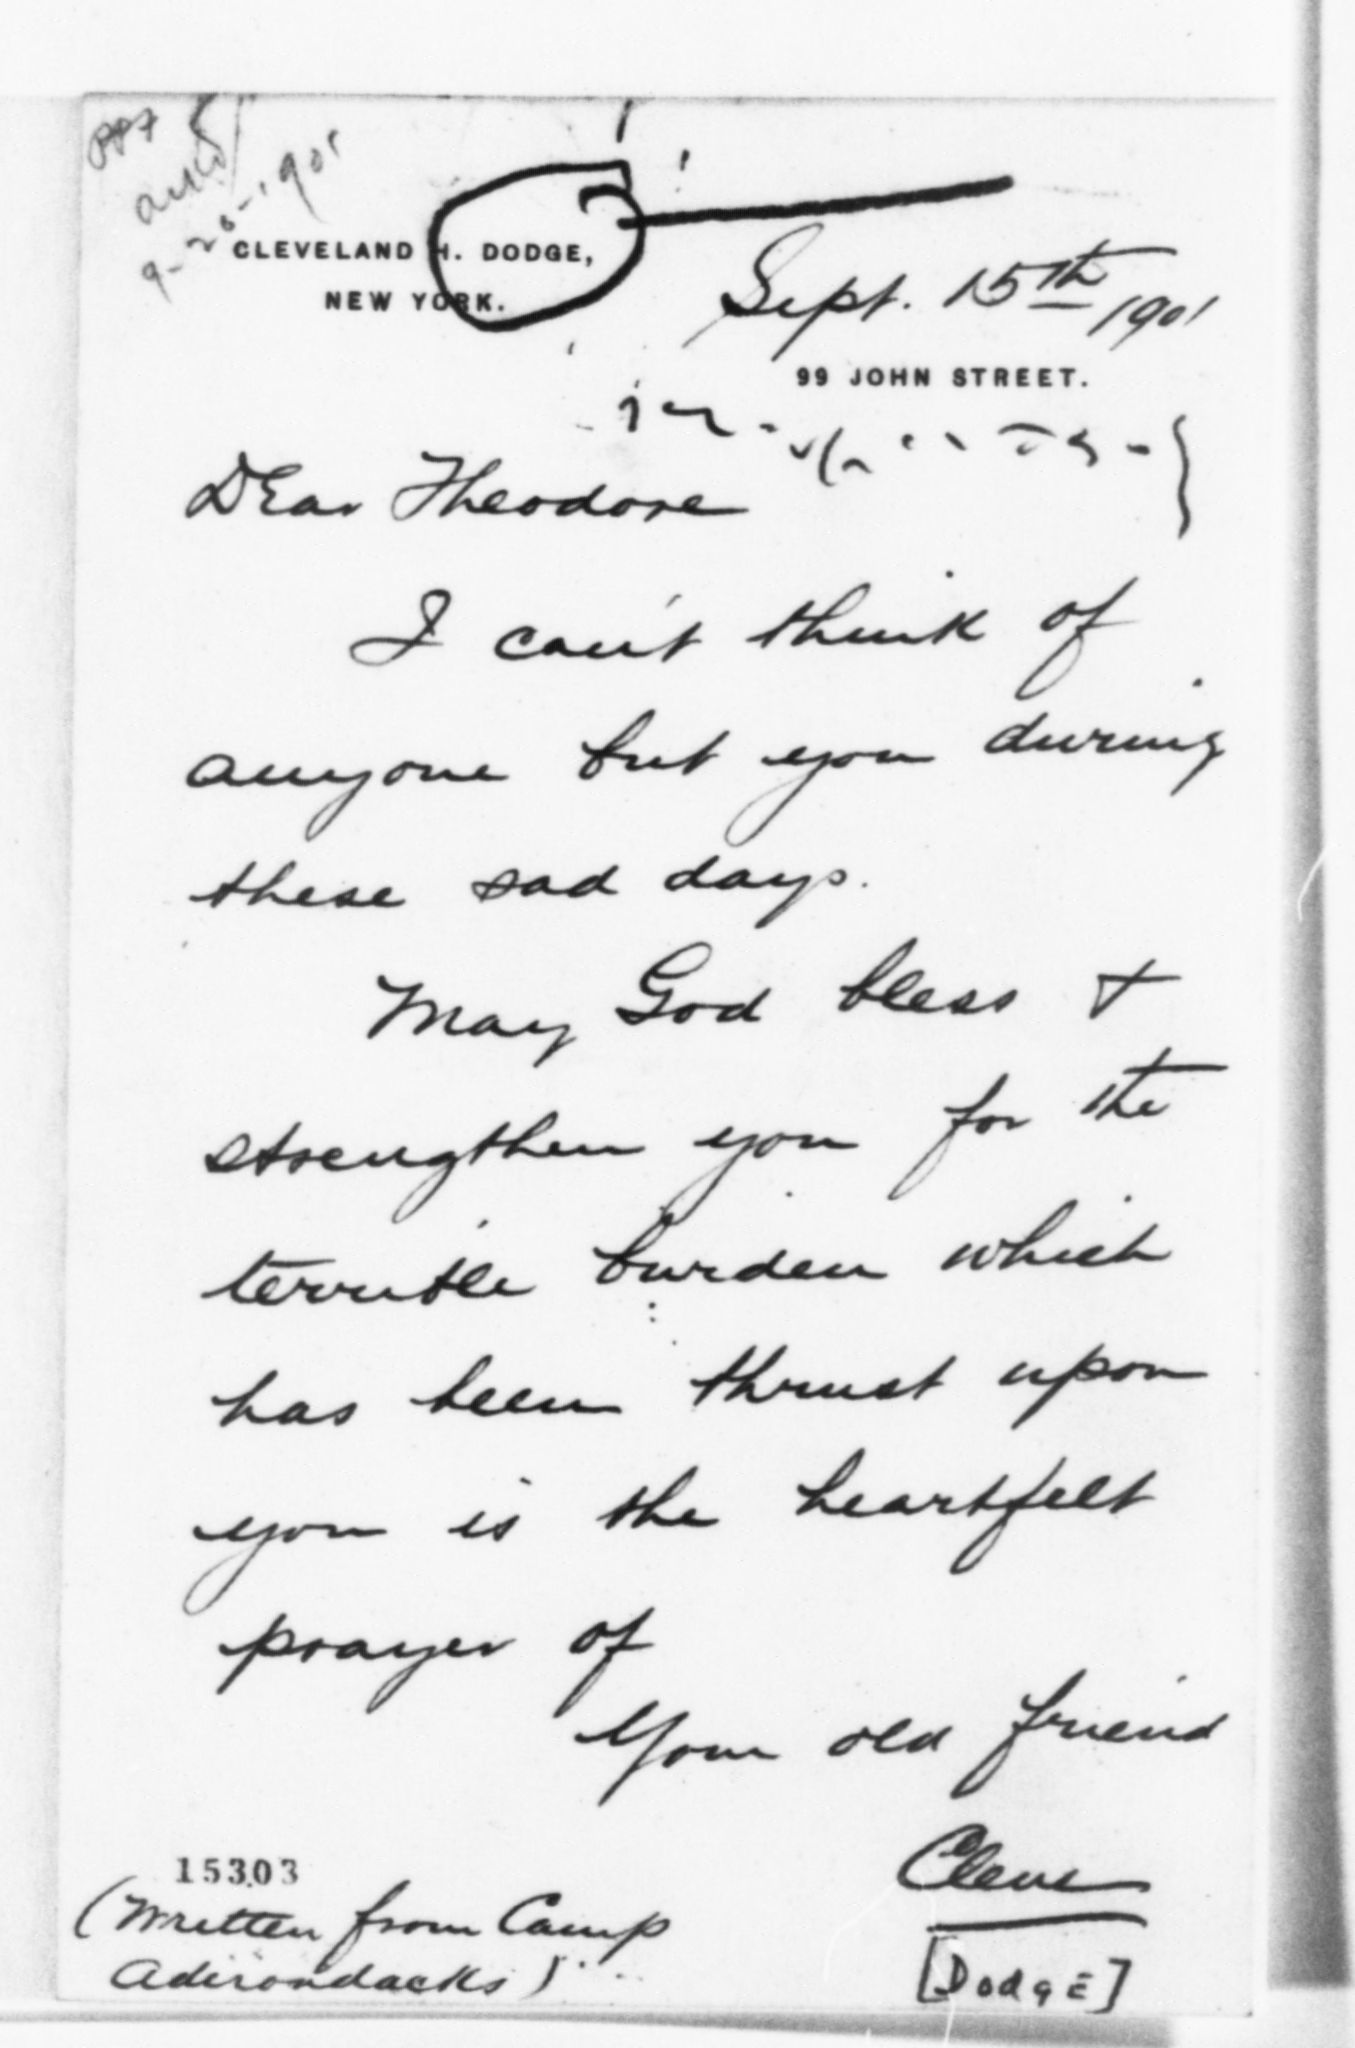 PPF
ackd
9-20-1901
CLEVELAND H. DODGE,
NEW YORK.
Sept. 15th 1901
99 JOHN STREET.
Dear Theodore
I can't think of
anyone but you during
these sad days.
May God bless &
strengthen you for the
terrible burden which
has been thrust upon
you is the heartfelt
prayer of
Your old friend
Cleve
[Dodge]
15303
(Written from Camp
Adirondacks)